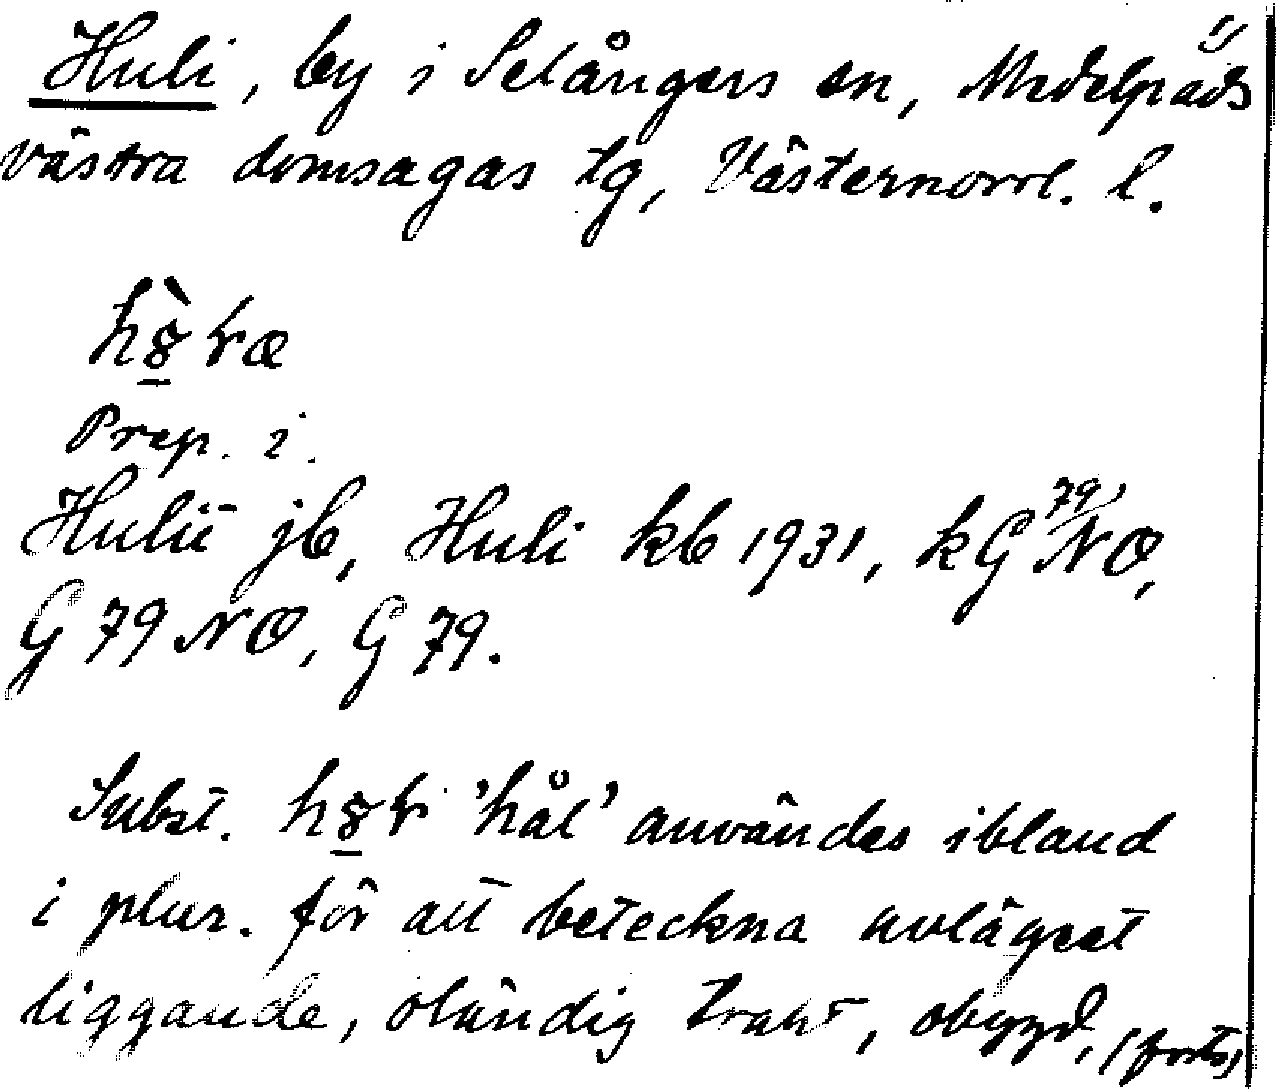 Huli, by i Selångers sn, Medelpads
västra domsagas tg, Västernorrl. l.
Prep. i.
Hulii jb, Huli kb 1931, kG 79 NO,
G 79 NO, G 79.
Subst. 'hål' användes ibland
i plur. för att beteckna avlägset
liggande, oländig trakt, obygd, (forts)